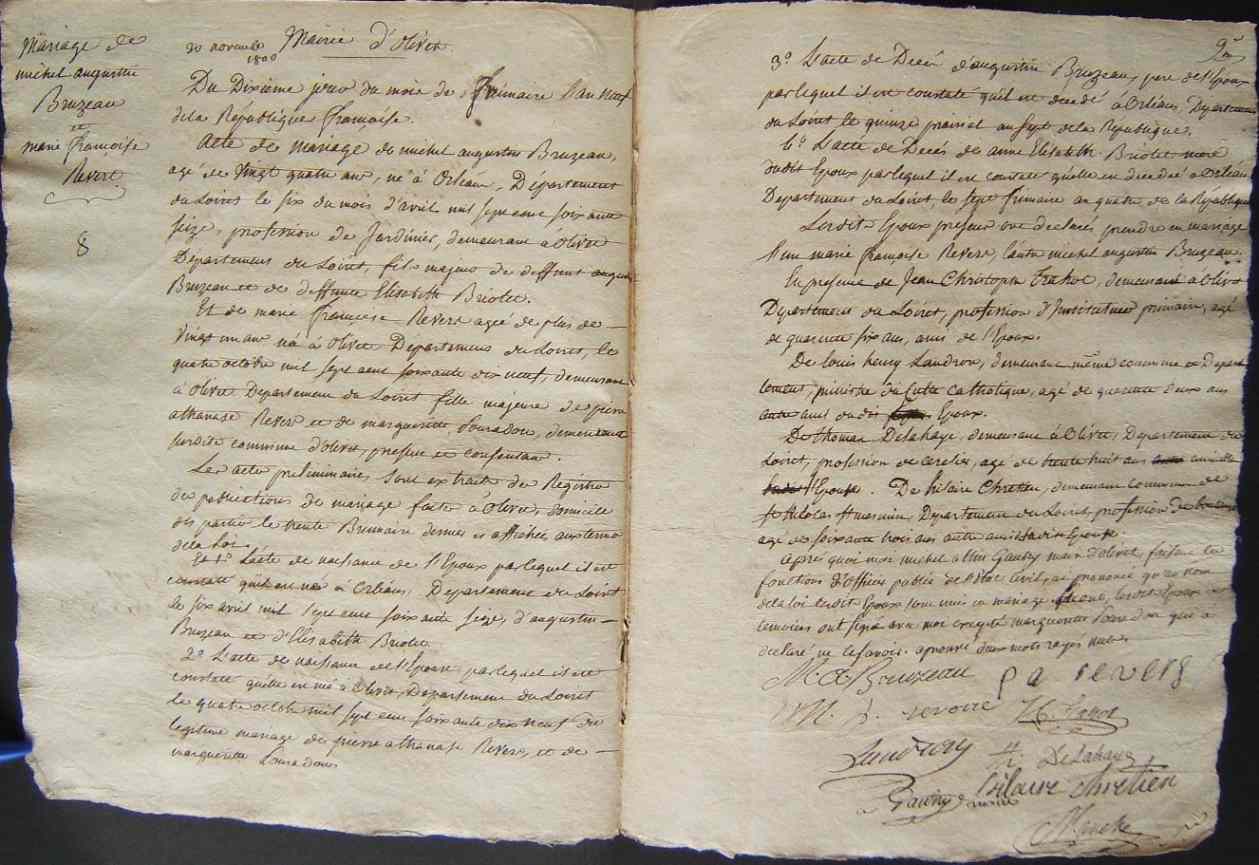 Mariage de
michel augustin
Bruzeau
et
marie françoise
Revers
8
30 novembre
1800
Mairie d'Olivet
Du Dixième jour du mois de Frimaire l'an Neuf
de la République française.
Acte de mariage de michel augustin Bruzeau,
agé de vingt quatre ans, né à Orléans, Département
du Loiret le six du mois d'avril mil sept cent soixante
seize, profession de Jardinier, demeurant à Olivet
Département du Loiret, fils majeur de deffunt augustin
Bruzeau et de deffunte Elisabeth Briolet.
Et de marie françoise Revers agée de plus de
vingt un ans née à Olivet Département du Loiret, le
quatre octobre mil sept cent soixante dix neuf, demeurant
à Olivet Département du Loiret fille majeure de pierre
athanase Revers et de marguerite Louradou, demeurant
susdite commune d'olivet, présent et consentant.
Les actes préliminaires sont extraits des Registres
des publications de mariage faites à Olivet, domicile
des parties le trente Brumaire dernier et affichées aux termes
de la loi.
Et 1° L'acte de naissance de l'Epoux par lequel il est
constaté qu'il est né à Orléans, Département du Loiret
le six avril mil sept cent soixante seize, d'augustin
Bruzeau et d'Elisabeth Briolet
2° L'acte de naissance de l'Epouse par lequel il est
constaté qu'elle est née à Olivet, Département du Loiret
le quatre octobre mil sept cent soixante dix neuf du
legitime mariage de pierre athanase Revers, et de
marguerite Louradou
3° L'acte de Décès d'augustin Bruzeau, pere de l'Epoux
par lequel il est constaté qu'il est décédé à Orléans, Département
du Loiret le quinze prairial an sept de la République.
4° L'acte de Décès de anne Elisabeth Briolet mere
dudit Epoux par lequel il est constaté qu'elle est décédée à Orléans
Département du Loiret, le sept frimaire an quatre de la République
Lesdits Epoux présens ont déclaré prendre en mariage
l'un marie françoise Revers, l'autre michel augustin Bruzeau.
En présence de Jean Christophe, demeurant à Olivet
Département du Loiret, profession d'Instituteur primaire, agé
de quarante six ans, amis de l'Epoux.
De louis henry Landron, demeurant même commune et Départ
tement, ministre du Culte Catholique, agé de quarante deux ans
autre ami dudit Epoux.
De thomas Delahaye, demeurant à Olivet, Département du
Loiret, profession de cerclier, agé de trente huit ans ami de
l'Epouse. De hilaire Chretien, demeurant commune de
St hilaire St mesmin, Département du Loiret, profession de
agé de soixante trois ans autre ami de ladite Epouse.
après quoi moi michel Gaudry maire d'olivet, faisant les
fonctions d'Officier public de l'état civil, ai prononcé qu'au nom
de la loi lesdits Epoux sont unis en mariage, lesdits Epoux et
temoins ont signé avec moi excepté marguerite Louradou qui a
declaré ne le savoir. approuvé deux mots rayés nuls.
M. A. Bruzeau
P a revers
Landrony
Delahaye
hilaire chretien
Gaudry maire